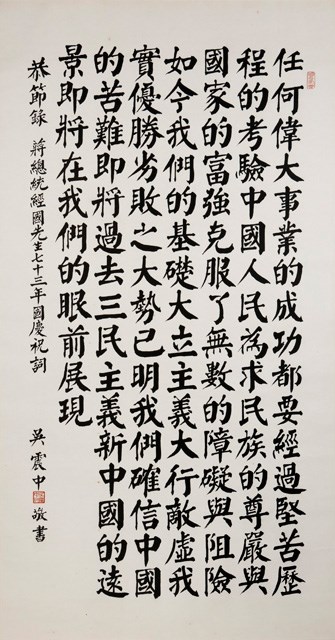 任何偉大事業的成功都要經過堅苦歷
程的考驗中國人民為求民族的尊嚴與
國家的富強克服了無數的障礙與阻險
如今我們的基礎大立主義大行敵虛我
實優勝劣敗之大勢已明我們確信中國
的苦難即將過去三民主義新中國的遠
景即將在我們的眼前展現
恭節錄 蔣總統經國先生七十三年國慶祝詞
吳震中 敬書